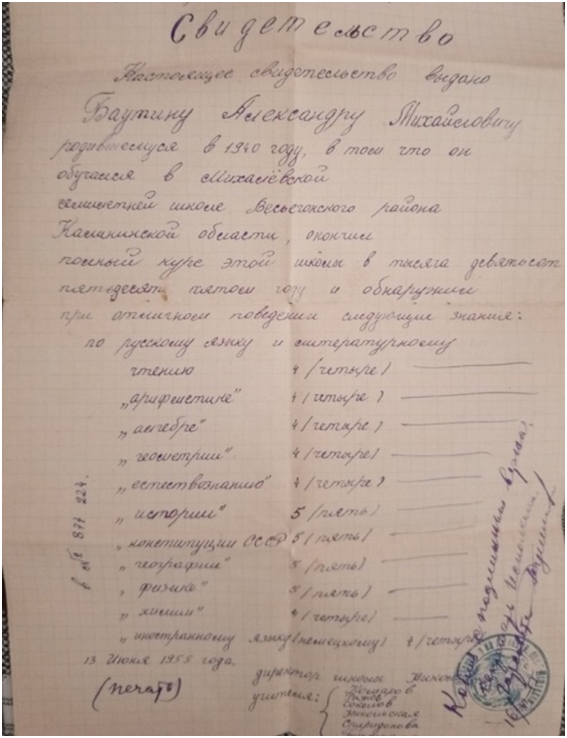 Свидетельство
Настоящее свидетельство выдано
Баутину Александру Михайловичу
родившемуся в 1940 году, в том что он
обучался в Михалёвской
семилетней школе Весьегонского района
Калининской области, окончил
полный курс этой школы в тысяча девятьсот
пятьдесят пятом году и обнаружил
при отличном поведении следующие знания:
по русскому языку и литературному
чтению 4 (четыре)
„арифметике" 4 (четыре)
„алгебре" 4 (четыре)
„геометрии" 4 (четыре)
„естествознанию" 4 (четыре)
„истории" 5 (пять)
„конституции СССР 5 (пять)
„географии" 5 (пять)
„физике" 5 (пять)
„химии" 4 (четыре)
„иностранному языку (немецкому) 4 (четыре)
13 Июня 1955 года.
директор школы
(печать)
учителя:
Соколов
Никольская
Спиридонова
в № 877224.
Копия с подлинным верна: